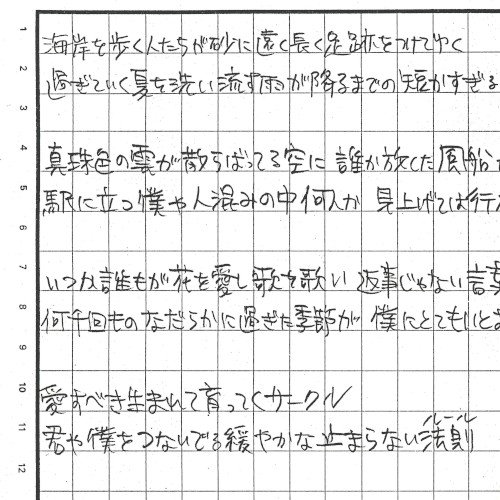 1 海岸を歩く人たちが砂に遠く長く足跡をつけてゆく
2 過ぎていく夏を洗い流す雨が降るまでの短かすぎる
3
4 真珠色の雲が散らばってる空に 誰か放した風船
5 駅に立つ僕や人混みの中何人か 見上げては行
6
7 いつか誰もが花を愛し歌を歌い 返事じゃない言
8 何千回ものなだらかに過ぎた季節が 僕にとてもいと
9
10 愛すべき生まれて育ってくサークル
ルール
11 君や僕をつないでる緩やかな止まらない法則
12